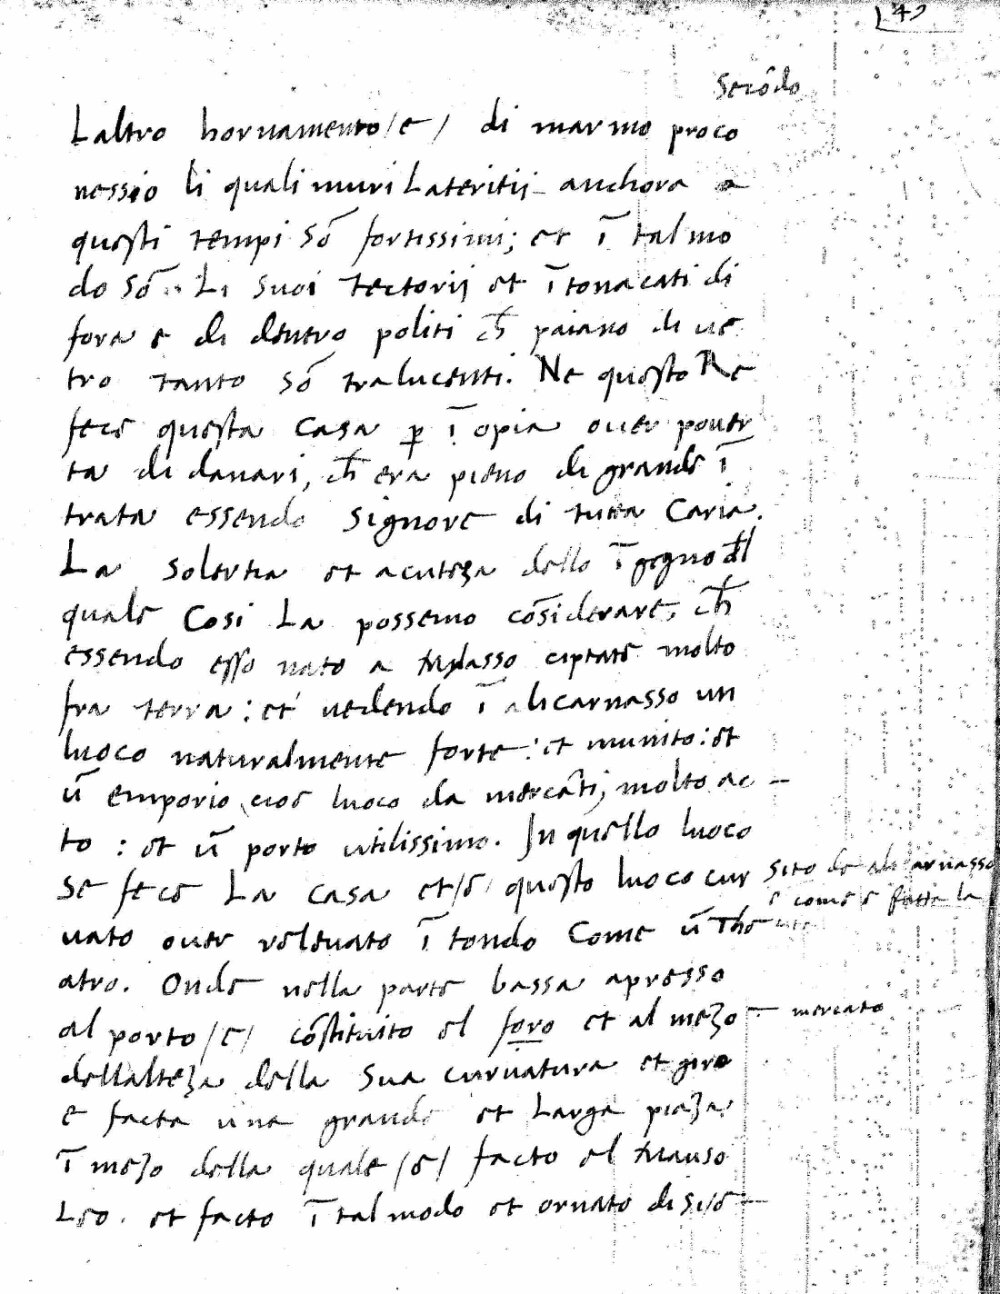 49
Secōdo
Laltro hornamento /e/ di marmo proco
nessio li quali muri Lateritij anchora a
questi tempi sō fortissimi; et ī tal mo
do sō Li suoi Tectorij et ītonacati di
fora e di dentro politi ch̄ paiano di ve
tro tanto sō tralucenti. Ne questo Re
fece questa casa ꝑ īopia over pover
ta di danari, ch̄ era pieno di grande ī
trata essendo signore di tutta Caria.
La solertia et acuteza dello īgegno del
quale Cosi La possemo cōsiderare, ch̄
essendo esso nato a Mylasso ciptate molto
fra terra: et vedendo ī alicarnasso un
luoco naturalmente forte: et munito: et
ū emporio cioe luoco da mercāti, molto ac
to : et ū porto utilissimo. In quello luoco
se fece La casa et /e/ questo luoco cur
sito de alicarnasso
e come e fatto la
vato over relevato ī tondo Come ū The
atro. Onde nella parte bassa apresso
al porto /e/ cōstituito el foro et al mezo
mercato
dellalteza della sua curvatura et giro
e facta una grande et Larga piaza
ī mezo della quale /e/ facto el Mauso
Leo. et facto ī tal modo et ornato di si /e